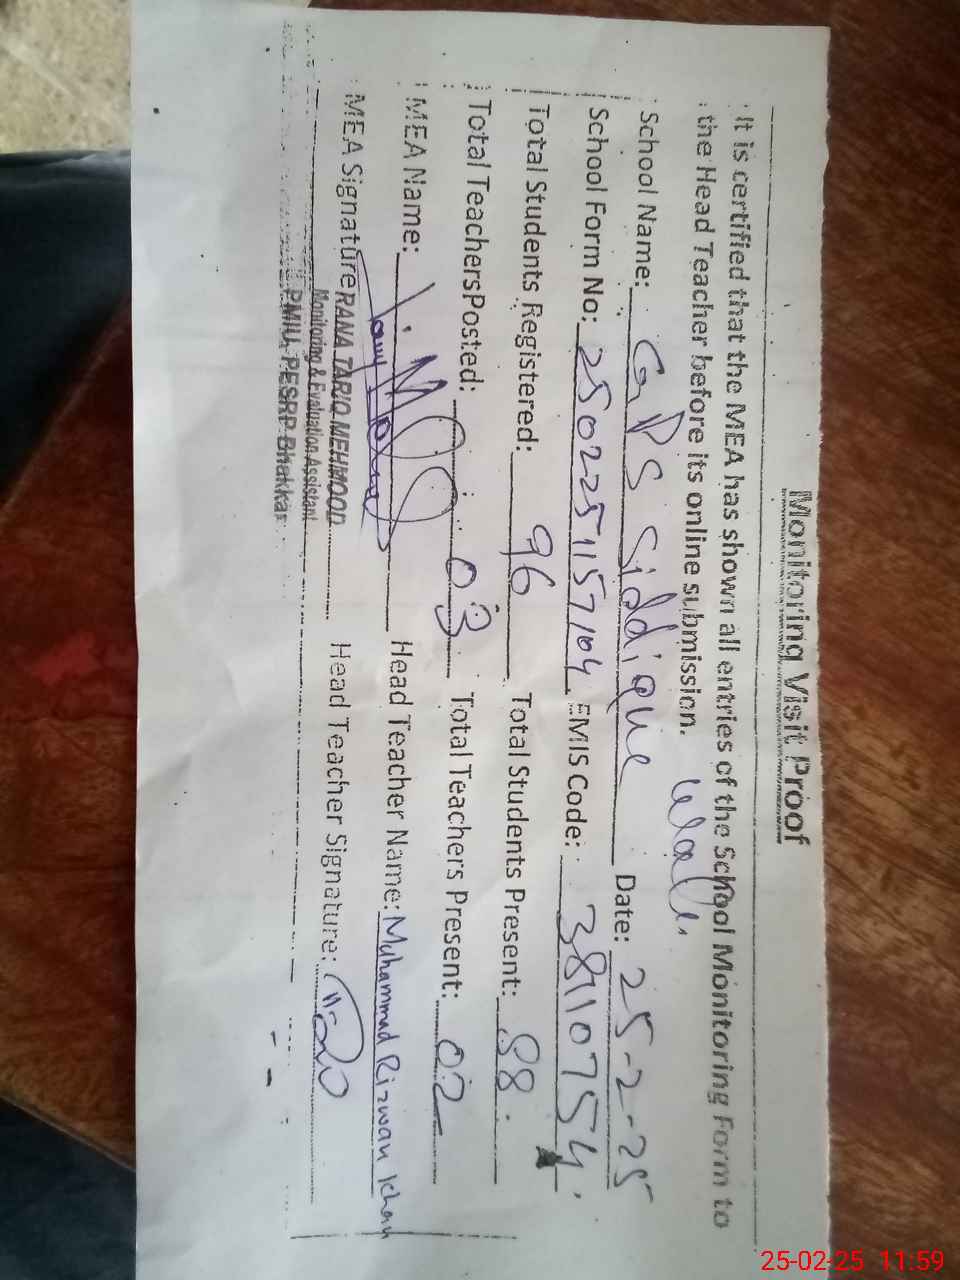 Monitoring Visit Proof
It is certified that the MEA has shown all entries of the School Monitoring Form to
the Head Teacher before its online submission.
School Name: GPS Siddique Wala Date: 25-2-25
School Form No: 2502251157104 EMIS Code: 38110754
Total Students Registered: 96 Total Students Present: 88
Total Teachers Posted: 03 Total Teachers Present: 02
MEA Name: Head Teacher Name: Muhammad Rizwan Khan
MEA Signature RANA TARIQ MEHMOOD Head Teacher Signature:
Monitoring & Evaluation Assistant
PMIU, PESRP Bhakkar
25-02-25 11:59